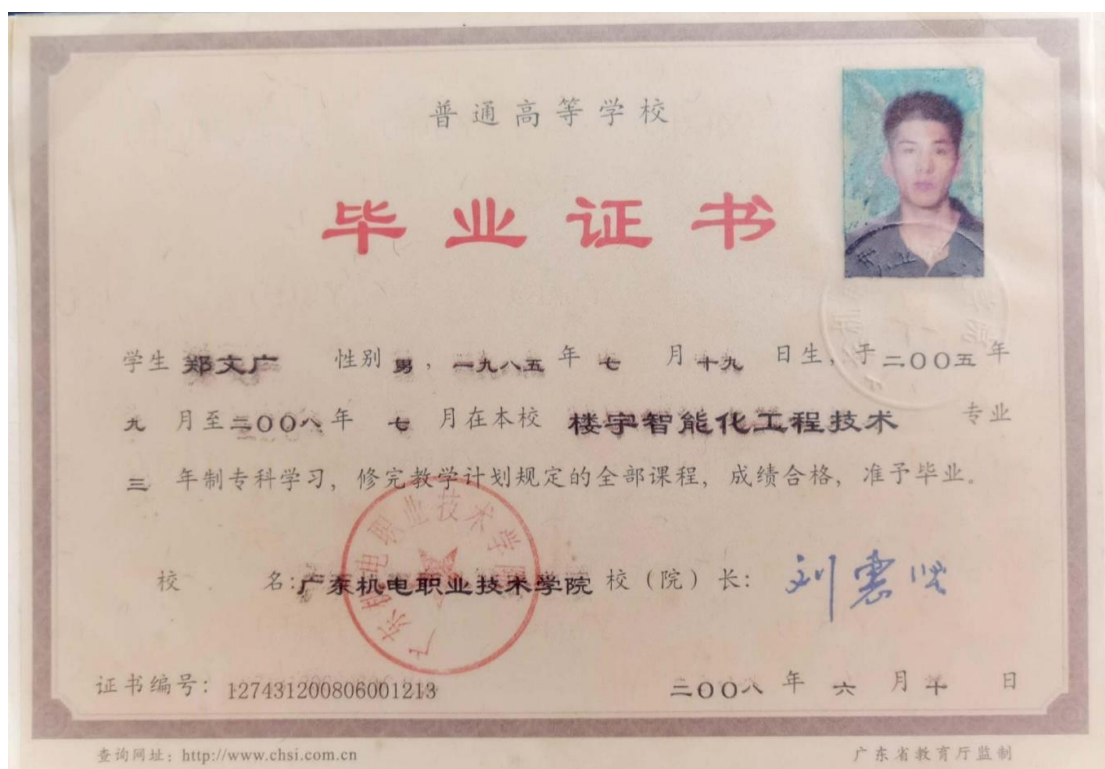 普通高等学校
毕业证书
学生 郑文广 性别 男，一九八五 年 七 月 十九 日生，于 二〇〇五 年
九 月至 二〇〇八 年 七 月在本校 楼宇智能化工程技术 专业
三 年制专科学习，修完教学计划规定的全部课程，成绩合格，准予毕业。
广东机电职业技术学院
校 名：广东机电职业技术学院 校（院）长：
证书编号：127431200806001213 二〇〇八 年 六 月 日
查询网址：http://www.chsi.com.cn 广东省教育厅监制